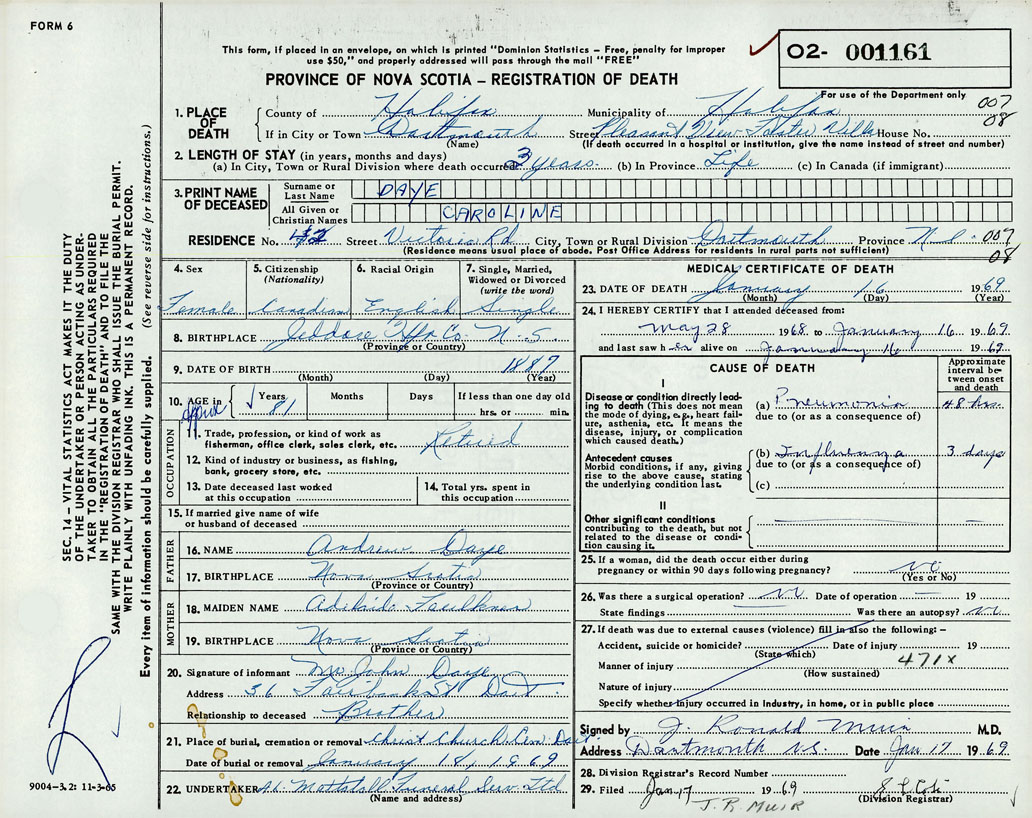 FORM 6
This form, if placed in an envelope, on which is printed "Dominion Statistics – Free, penalty for improper
use $50," and properly addressed will pass through the mail "FREE"
02- 001161
PROVINCE OF NOVA SCOTIA – REGISTRATION OF DEATH
For use of the Department only
007
08
1. PLACE OF DEATH
County of Halifax Municipality of Halifax
If in City or Town Dartmouth Street Pleasant View Foster Villa House No.
(Name) (If death occurred in a hospital or institution, give the name instead of street and number)
2. LENGTH OF STAY (in years, months and days)
(a) In City, Town or Rural Division where death occurred 3 years (b) In Province Life (c) In Canada (if immigrant)
3. PRINT NAME OF DECEASED
Surname or Last Name DAYE
All Given or Christian Names CAROLINE
RESIDENCE No. 42 Street Victoria Rd City, Town or Rural Division Dartmouth Province N.S. 007
(Residence means usual place of abode. Post Office Address for residents in rural parts not sufficient)
08
4. Sex Female
5. Citizenship (Nationality) Canadian
6. Racial Origin English
7. Single, Married, Widowed or Divorced (write the word) Single
8. BIRTHPLACE Jeddore Hfx Co. N.S.
(Province or Country)
9. DATE OF BIRTH 1887
(Month) (Day) (Year)
10. AGE in approx Years 81 Months Days If less than one day old hrs. or min.
OCCUPATION
11. Trade, profession, or kind of work as fisherman, office clerk, sales clerk, etc. Retired
12. Kind of industry or business, as fishing, bank, grocery store, etc.
13. Date deceased last worked at this occupation
14. Total yrs. spent in this occupation
15. If married give name of wife or husband of deceased
FATHER
16. NAME Andrew Daye
17. BIRTHPLACE Nova Scotia
(Province or Country)
MOTHER
18. MAIDEN NAME Adelaide Faulkner
19. BIRTHPLACE Nova Scotia
(Province or Country)
20. Signature of informant Mr. John Daye
Address 36 Fairbanks St Dart.
Relationship to deceased Brother
21. Place of burial, cremation or removal Christ Church Cem Dart
Date of burial or removal January 18, 1969
22. UNDERTAKER Mattatall Funeral Serv. Ltd
(Name and address)
MEDICAL CERTIFICATE OF DEATH
23. DATE OF DEATH January 16 1969
(Month) (Day) (Year)
24. I HEREBY CERTIFY that I attended deceased from:
May 28 1968 to January 16 1969
and last saw her alive on January 16 1969
CAUSE OF DEATH
Approximate interval between onset and death
I
Disease or condition directly leading to death (This does not mean the mode of dying, e.g., heart failure, asthenia, etc. It means the disease, injury, or complication which caused death.)
(a) Pneumonia 48 hrs.
due to (or as a consequence of)
Antecedent causes
Morbid conditions, if any, giving rise to the above cause, stating the underlying condition last.
(b) Influenza 3 days
due to (or as a consequence of)
(c)
II
Other significant conditions contributing to the death, but not related to the disease or condition causing it.
25. If a woman, did the death occur either during pregnancy or within 90 days following pregnancy? no
(Yes or No)
26. Was there a surgical operation? no Date of operation 19
State findings Was there an autopsy? no
27. If death was due to external causes (violence) fill in also the following: –
Accident, suicide or homicide? Date of injury 19
(State which)
471X
Manner of injury
(How sustained)
Nature of injury
Specify whether injury occurred in industry, in home, or in public place
Signed by J. Ronald Muir M.D.
Address Dartmouth N.S. Date Jan 17 1969
28. Division Registrar's Record Number
29. Filed Jan 17 1969
(Division Registrar)
J. R. MUIR
SEC. 14 – VITAL STATISTICS ACT MAKES IT THE DUTY
OF THE UNDERTAKER OR PERSON ACTING AS UNDER-
TAKER TO OBTAIN ALL THE PARTICULARS REQUIRED
IN THE "REGISTRATION OF DEATH" AND TO FILE THE
SAME WITH THE DIVISION REGISTRAR WHO SHALL ISSUE THE BURIAL PERMIT.
WRITE PLAINLY WITH UNFADING INK. THIS IS A PERMANENT RECORD.
Every item of information should be carefully supplied. (See reverse side for instructions.)
9004-3.2: 11-3-65